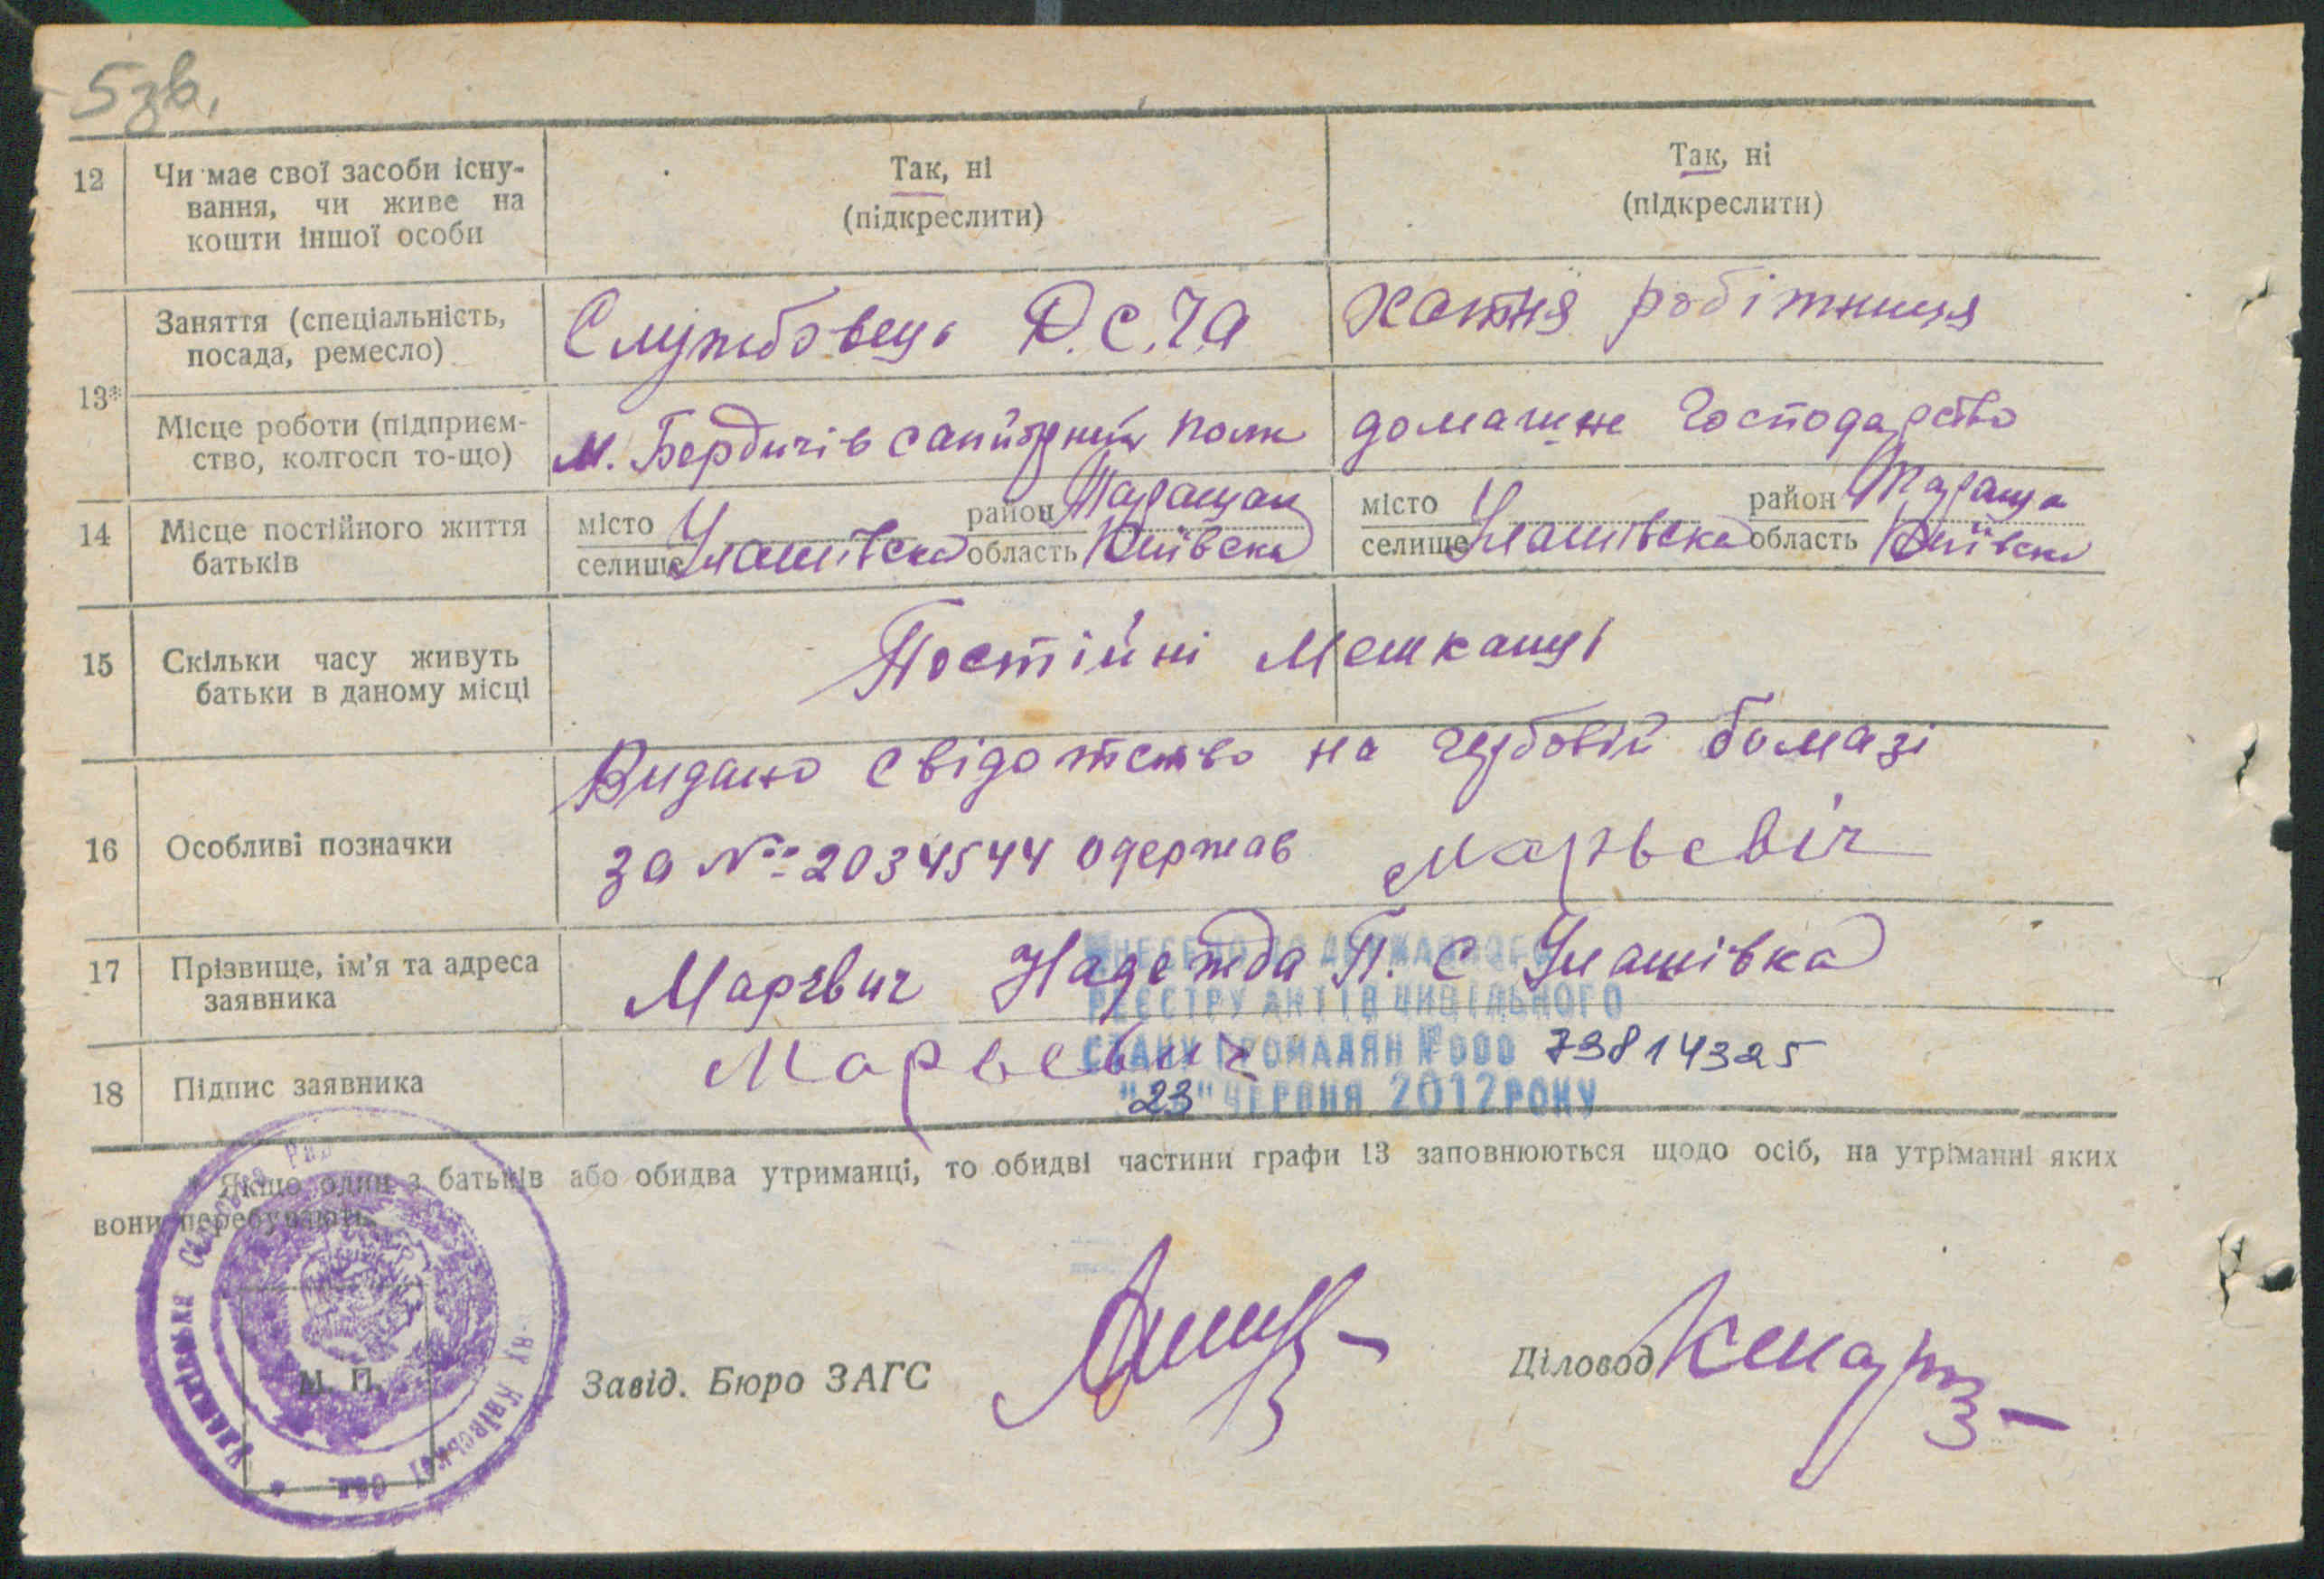 5 зв.
12 Чи має свої засоби існу- Так, ні Так, ні
вання, чи живе на (підкреслити) (підкреслити)
кошти іншої особи
Заняття (спеціальність, Службовець Р.С.Ч.А Хатня робітниця
посада, ремесло)
13*
Місце роботи (підприєм- м. Бердичів саперний полк домашнє господарство
ство, колгосп то-що)
14 Місце постійного життя місто район Таращан місто район Тараща
батьків селище Улашівка область Київська селище Улашівка область Київська
15 Скільки часу живуть Постійні мешканці
батьки в даному місці
Видано свідотство на гербовій бомазі
16 Особливі позначки за № 2034544 одержав Марьевіч
17 Прізвище, ім'я та адреса Маревич Надежда П. с Улашівка
заявника
ВНЕСЕНО ДО ДЕРЖАВНОГО
РЕЄСТРУ АКТІВ ЦИВІЛЬНОГО
СТАНУ ГРОМАДЯН № 000 73814325
"23" ЧЕРВНЯ 2012 РОКУ
18 Підпис заявника Марьевич
* Якщо один з батьків або обидва утриманці, то обидві частини графи 13 заповнюються щодо осіб, на утриманні яких
вони перебувають.
М. П.
Завід. Бюро ЗАГС Діловод